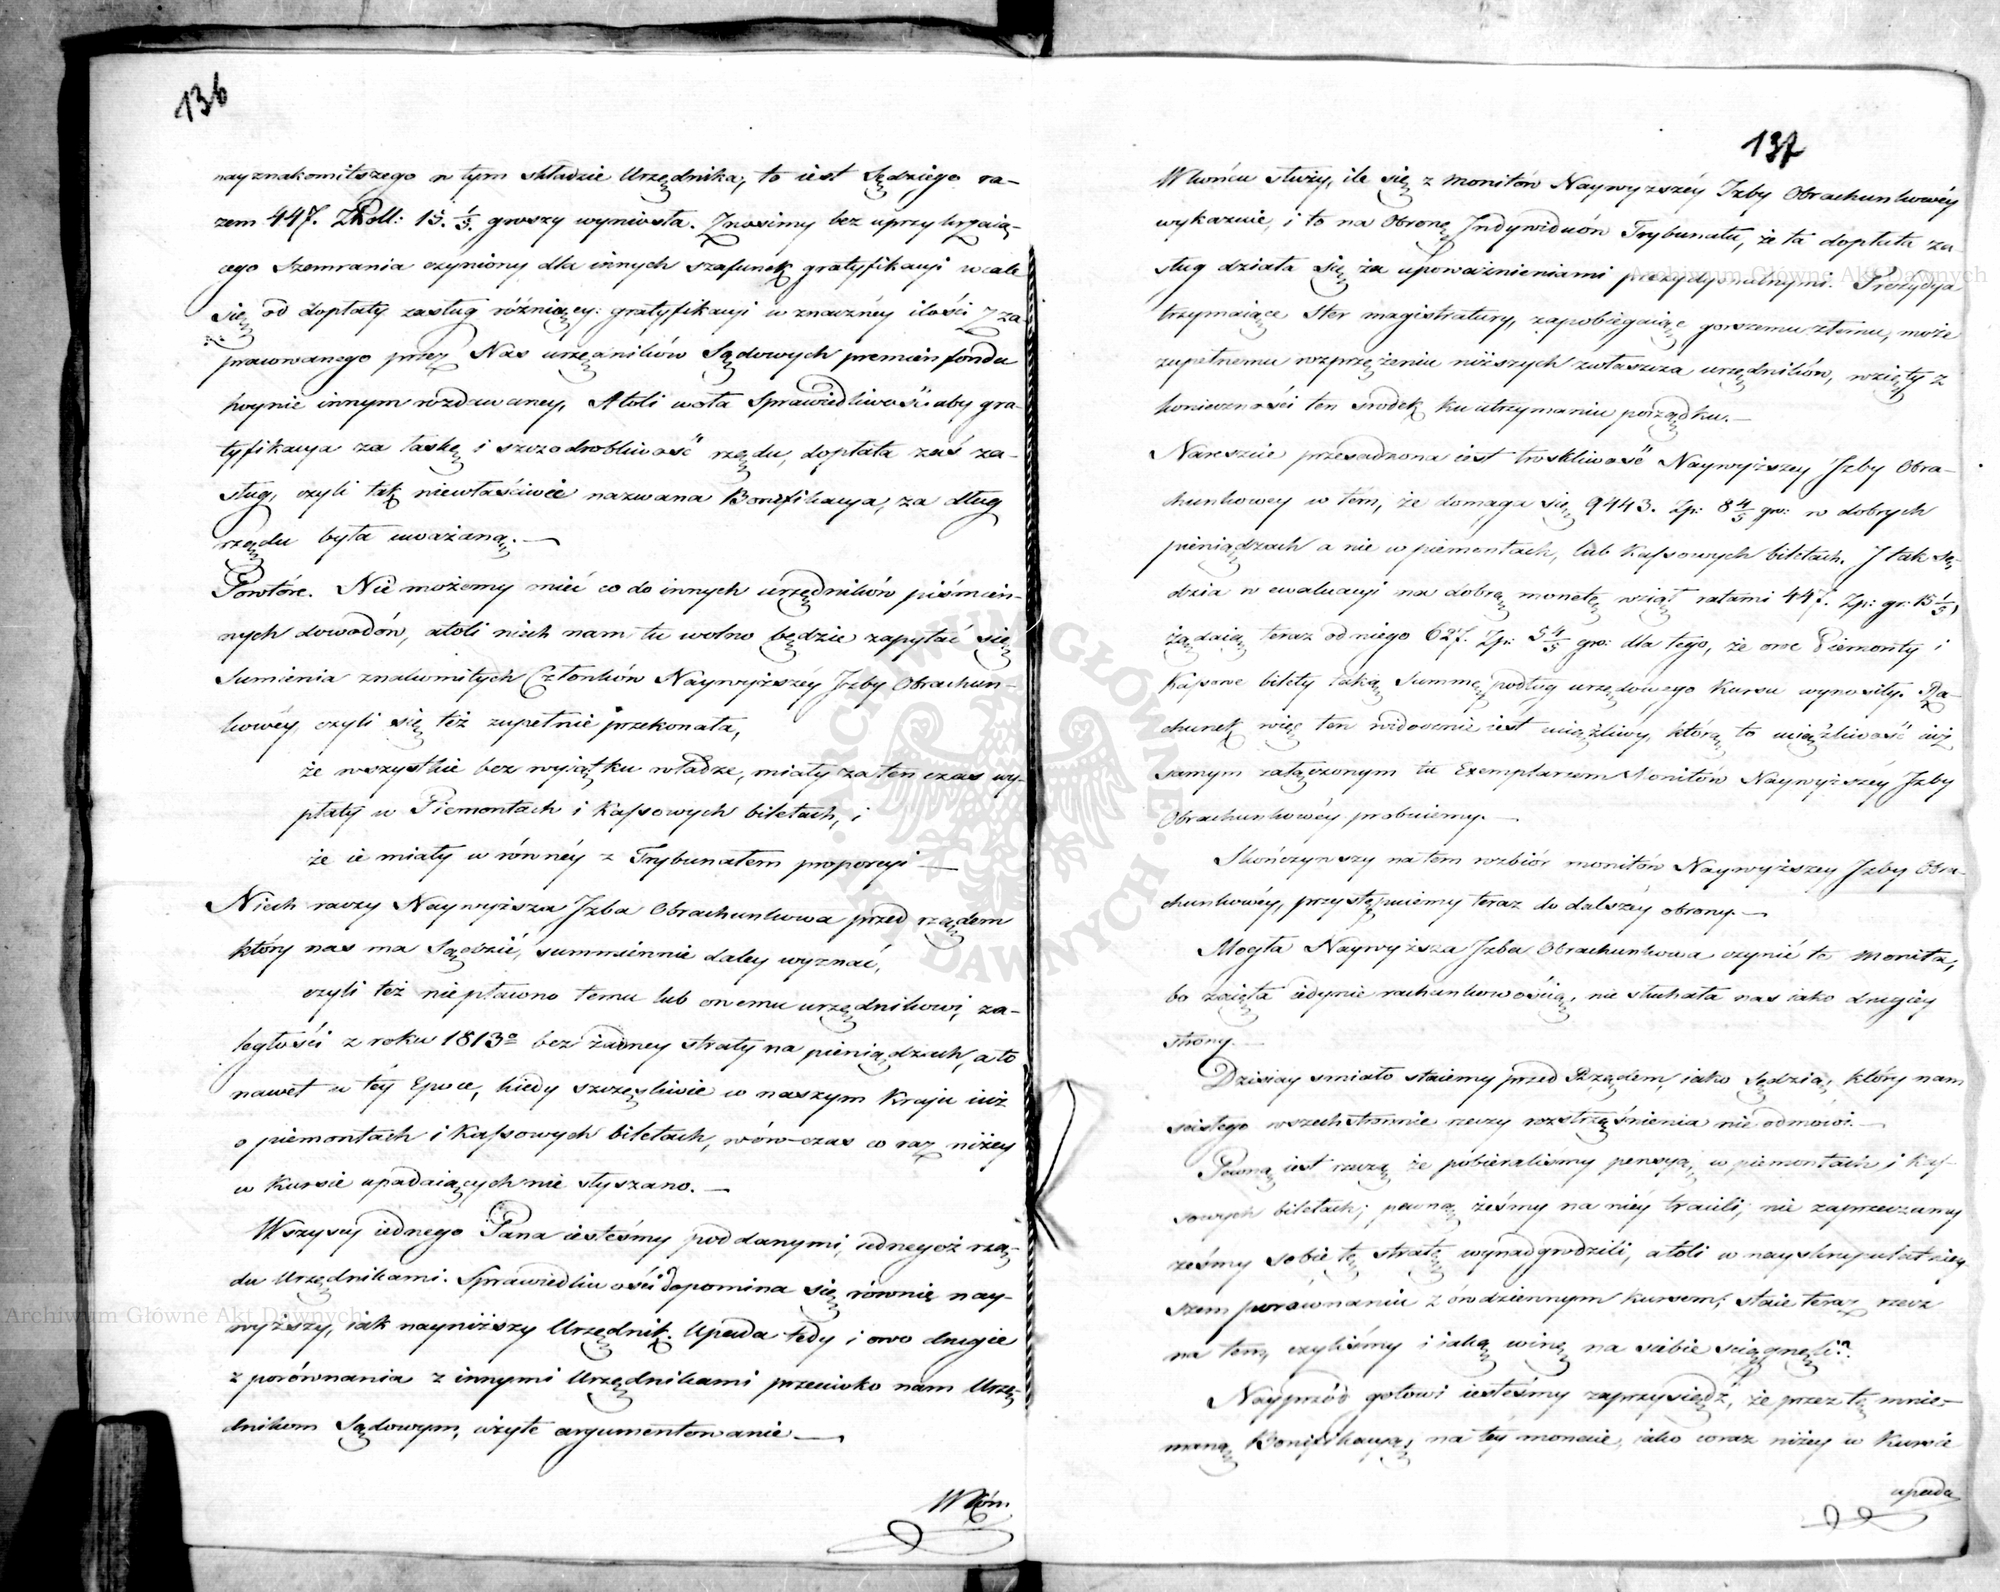 136
nayznakomitszego w tym składzie Urzędnika, to iest Sędziego ra-
zem 447. ZPoll: 15. 1/5. groszy wyniosła. Znosimy bez uprzykrzaią-
cego Szemrania czyniony dla innych szafunek gratyfikacyi wcale
się od dopłaty zasług różniącey: gratyfikacyi w znaczney ilości Z za-
pracowanego przez Nas urzędników Sądowych premien fondu
hoynie innym rozdawaney. Atoli woła Sprawiedliwość aby gra-
tyfikacya za łaskę i szczodrobliwość rządu, dopłata zaś za-
sług, czyli tak niewłaściwie nazwana Bonifikacya, za dług
rządu była uważaną.—
Powtóre. Nie możemy mieć co do innych urzędników piśmien-
nych dowodów, atoli niech nam tu wolno będzie zapytać się
Sumienia znakomitych Członków Naywyższéy Jzby Obrachun-
kowéy, czyli się też zupełnie przekonała,
że wszystkie bez wyiątku władze, miały za ten czas wy-
płaty w Piemontach i Kassowych biletach, i
że ie miały w równéy z Trybunałem proporcyi —
Niech raczy Naywyższa Jzba Obrachunkowa przed rządem
który nas ma Sądzić, summiennie daley wyznać,
czyli też niepłacono temu lub onemu urzędnikowi, za-
ległości z roku 1813º bez żadney straty na pieniądzach, a to
nawet w téy Epoce, kiedy szczęśliwie w naszym Kraju iuż
o piemontach i Kassowych biletach, wów-czas co raz niżey
w Kursie upadaiących nie słyszano.—
Wszyscy iednego Pana iesteśmy poddanymi, iednegoż rzą-
du Urzędnikami. Sprawiedliwości dopomina się równie nay-
wyższy, iak nayniższy Urzędnik. Upada tedy i owo drugie
z porównania z innymi Urzędnikami przeciwko nam Urzę-
dnikom Sądowym, użyte argumentowanie —
W Kon.
137
W końcu służy, ile się z Monitów Naywyzszéy Izby Obrachunkowéy
wykazuie, i to na Obronę Jndywiduów Trybunału, że ta dopłata za-
sług działa się za upoważnieniami prezydyonalnymi. Prezydya
trzymaiące Ster magistratury, zapobiegaiąc gorszemu złemu, może
zupełnemu rozprzężeniu niższych zwłaszcza urzędników, wzięły z
konieczności ten srodek ku utrzymaniu porządku.—
Nareszcie przesadzona iest troskliwość Naywyższey Jzby Obra-
chunkowey w tém, że domaga się 9443. Zp: 8 4/5 gr: w dobrych
pieniądzach a nie w piemontach, lub Kassowych biletach. J tak Sę-
dzia w ewaluacyi na dobrą monetę wziął ratami 447. Zp: gr: 15 1/5,
żądaią teraz od niego 627. Zp: 5 4/5 gr: dla tego, że owe Piemonty i
Kassowe bilety taką Summę podług urzędowego Kursu wynosiły. Ra-
chunek więc ten widocznie iest uciążliwy, którą to uciążliwość iuż
samym załączonym tu Exemplarzem Monitów Naywyższéy Jzby
Obrachunkowéy probuiemy.—
Skończywszy na tem rozbiór monitów Naywyższey Jzby Obra-
chunkowéy, przystępuiemy teraz do dalszéy obrony.—
Mogła Naywyższa Jzba Obrachunkowa czynić te Monita,
bo zaięta iedynie rachunkowością, nie słuchała nas iako drugiey
strony.—
Dzisiay smiało staiemy przed Rządem, iako Sędzią, który nam
scisłego wszechstronnie rzeczy rozstrząśnienia nie odmówi.—
Pewną iest rzeczą że pobieraliśmy pensyą, w piemontach i Kas-
sowych biletach; pewną żeśmy na niéy tracili; nie zaprzeczamy
żeśmy sobie tę stratę wynadgrodzili, atoli w nayskrupulatniey-
szem porównaniu z owdziennym kursem; staie teraz rzecz
na tem, czyliśmy i iaką winę na siebie sciągnęli?
Nayprzód gotowi iesteśmy zaprzysiędz, że przez tę mnie-
maną Bonifikacyą, na téy monecie, iako coraz niżey w Kursie
upada
Archiwum Główne Akt Dawnych
Archiwum Główne Akt Dawnych
ARCHIWUM GŁÓWNE AKT DAWNYCH